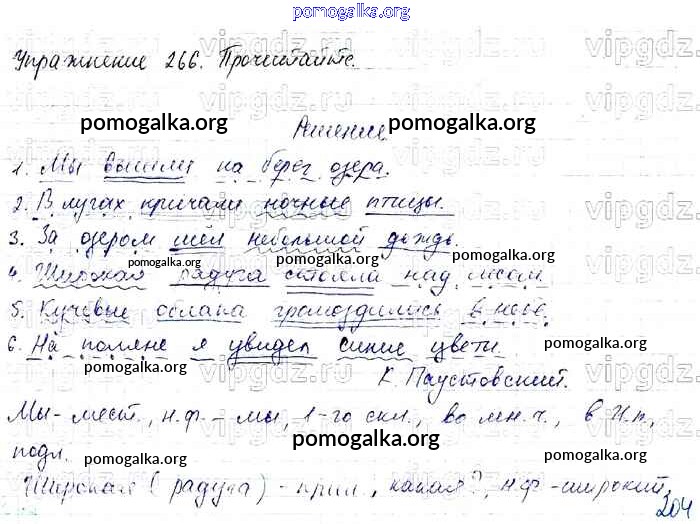 pomogalka.org
Упражнение 266. Прочитайте.
vipgdz.ru
pomogalka.org Решение. pomogalka.org
1. Мы вышли на берег озера.
2. В лугах кричали ночные птицы.
3. За озером шёл небольшой дождь.
pomogalka.org
4. Широкая радуга стояла над лесом.
5. Кучевые облака громоздились в небе.
6. На поляне я увидел синие цветы.
К. Паустовский.
pomogalka.org pomogalka.org
Мы - мест., н.ф. - мы, 1-го скл., во мн.ч., в И.п.,
pomogalka.org
подл.
pomogalka.org pomogalka.org
Широкая (радуга) - прил., какая?, н.ф - широкий,
204
pomogalka.org